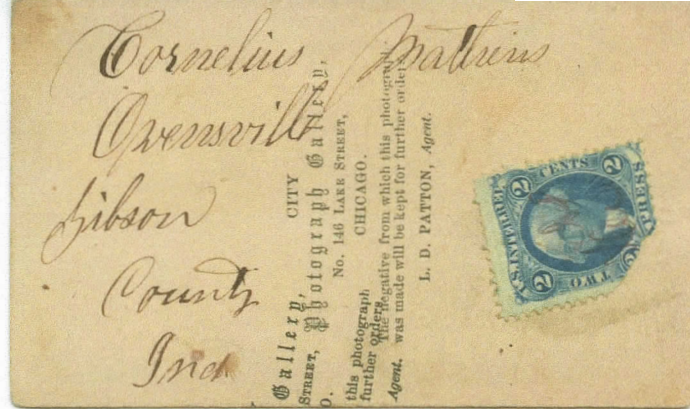 Cornelius Mathews
Owensville
Gibson
County
Ind
CITY
Photograph Gallery,
No. 146 LAKE STREET,
CHICAGO.
The negative from which this photograph
was made will be kept for further orders
L. D. PATTON, Agent.
Gallery,
STREET,
O.
this photograph
further orders.
Agent.
U.S. INTER. REV.
2 CENTS 2
EXPRESS
2 TWO